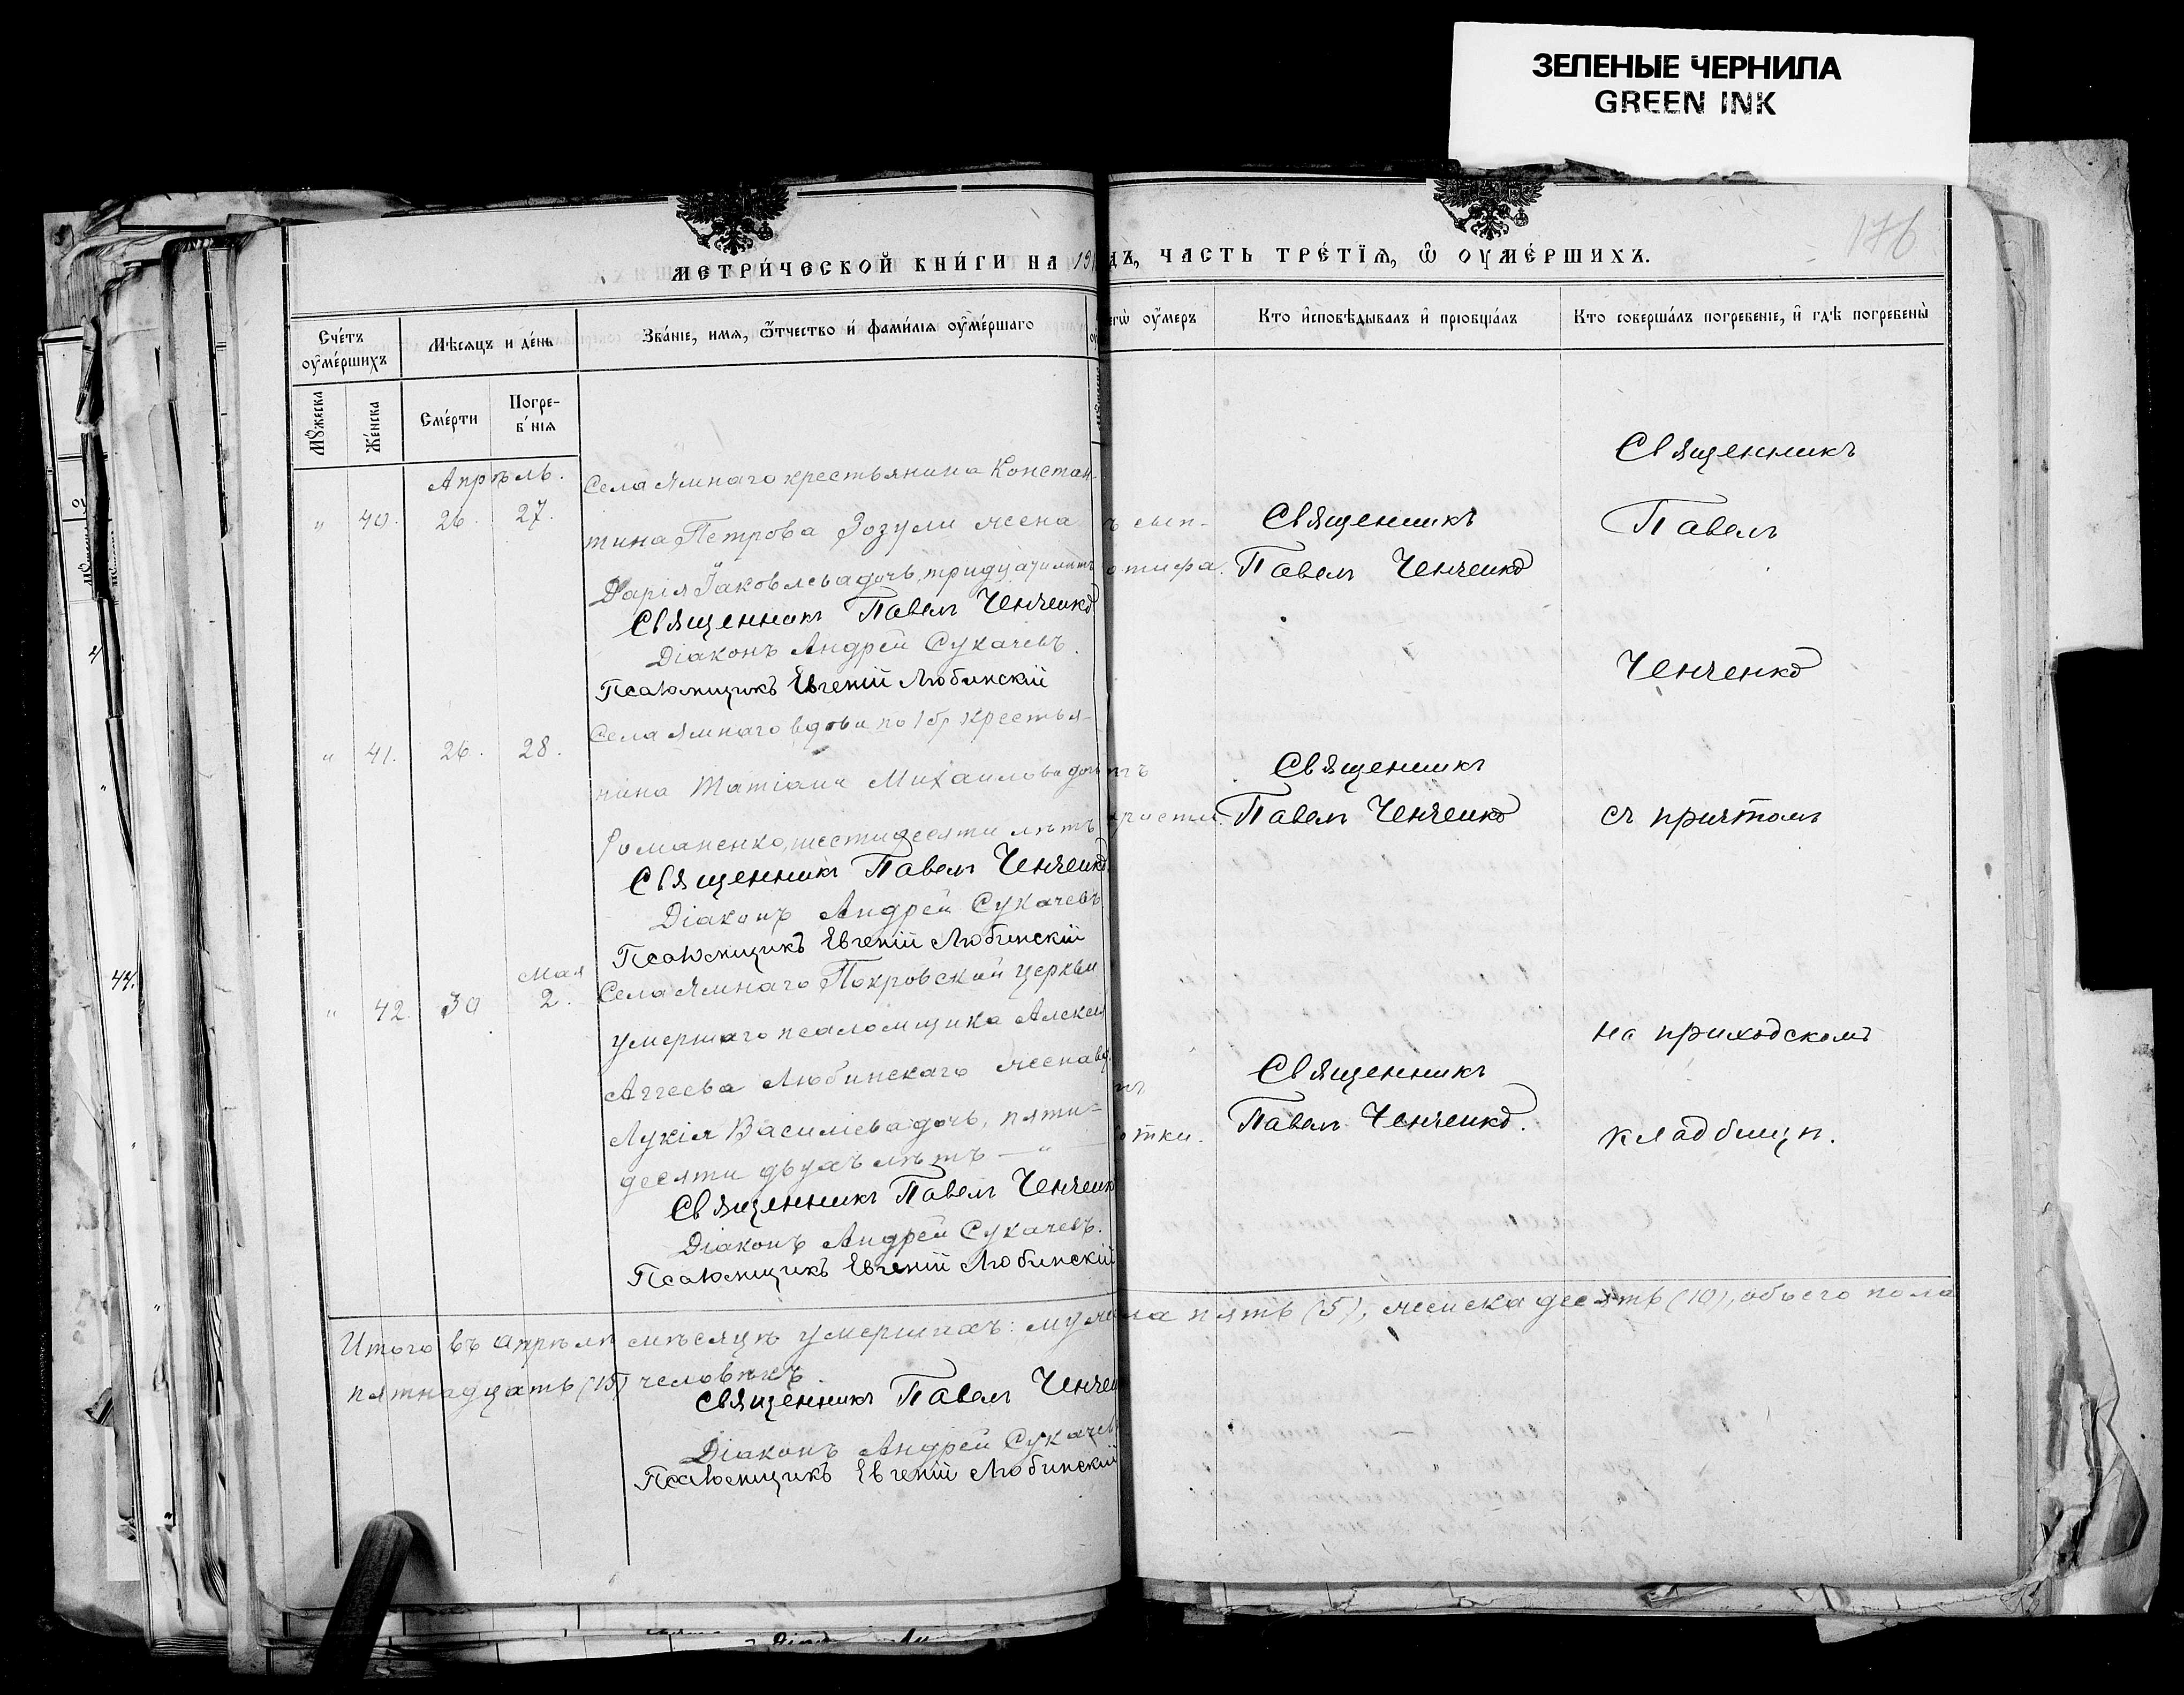 ЗЕЛЕНЫЕ ЧЕРНИЛА
GREEN INK
176
МЕТРИ́ЧЕСКОЙ КНИ́ГИ НА 19
ДЪ, ЧАСТЬ ТРЕ́ТЇѦ, Ѡ ОУМЕ́РШИХЪ.
Сче́тъ оумершихъ
Мѣ́сяцъ и де́нь
Зва́нїе, имѧ, ѻ҆́тчество и҆ фами́лїѧ оуме́ршагѡ
егѡ̀ оу҆́меръ
Кто и҆сповѣ́дывалъ и҆ прїѡбща́лъ
Кто соверша́лъ погребе́нїе, и҆ гдѣ̀ погребены̀
Мꙋжеска
Же́нска
Сме́рти
Погре-
бе́нїѧ
Апрѣль.
" 40. 26. 27.
Села Ямнаго крестьянина Констан-
тина Петрова Зозули жена
Дарія Іаковлева дочь, тридцати лѣтъ
Священникъ Павелъ Ченченко
Діаконъ Андрей Сукачевъ.
Псаломщикъ Евгеній Любинскій
сып-
тифа.
Священникъ
Павелъ Ченченко
" 41. 26. 28.
Села Ямнаго вдова по 1 бр. крестья-
нина Татіана Михаилова дочь
Романенко, шестидесяти лѣтъ
Священникъ Павелъ Ченченко
Діаконъ Андрей Сукачевъ
Псаломщикъ Евгеній Любинскій
Священникъ
Павелъ Ченченко
Мая
" 42. 30 2.
Села Ямнаго Покровской церкви
умершаго псаломщика Алексѣя
Аггеева Любинскаго жена вд.
Лукія Василіева дочь, пяти-
десяти двухъ лѣтъ — "
Священникъ Павелъ Ченченк
Діаконъ Андрей Сукачевъ.
Псаломщикъ Евгеній Любинскій
отки.
Священникъ
Павелъ Ченченко.
Священникъ
Павелъ
Ченченко
съ причтомъ
на приходскомъ
кладбищѣ.
Итого въ апрѣлѣ мѣсяцѣ умершихъ: муж ла пять (5), женска десять (10), обоего пола
пятнадцать (15) человѣкъ.
Священникъ Павелъ Ченчен
Діаконъ Андрей Сукачев
Псаломщикъ Евгеній Любинскій
44.